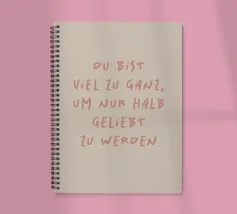 DU BIST
VIEL ZU GANZ,
UM NUR HALB
GELIEBT
ZU WERDEN